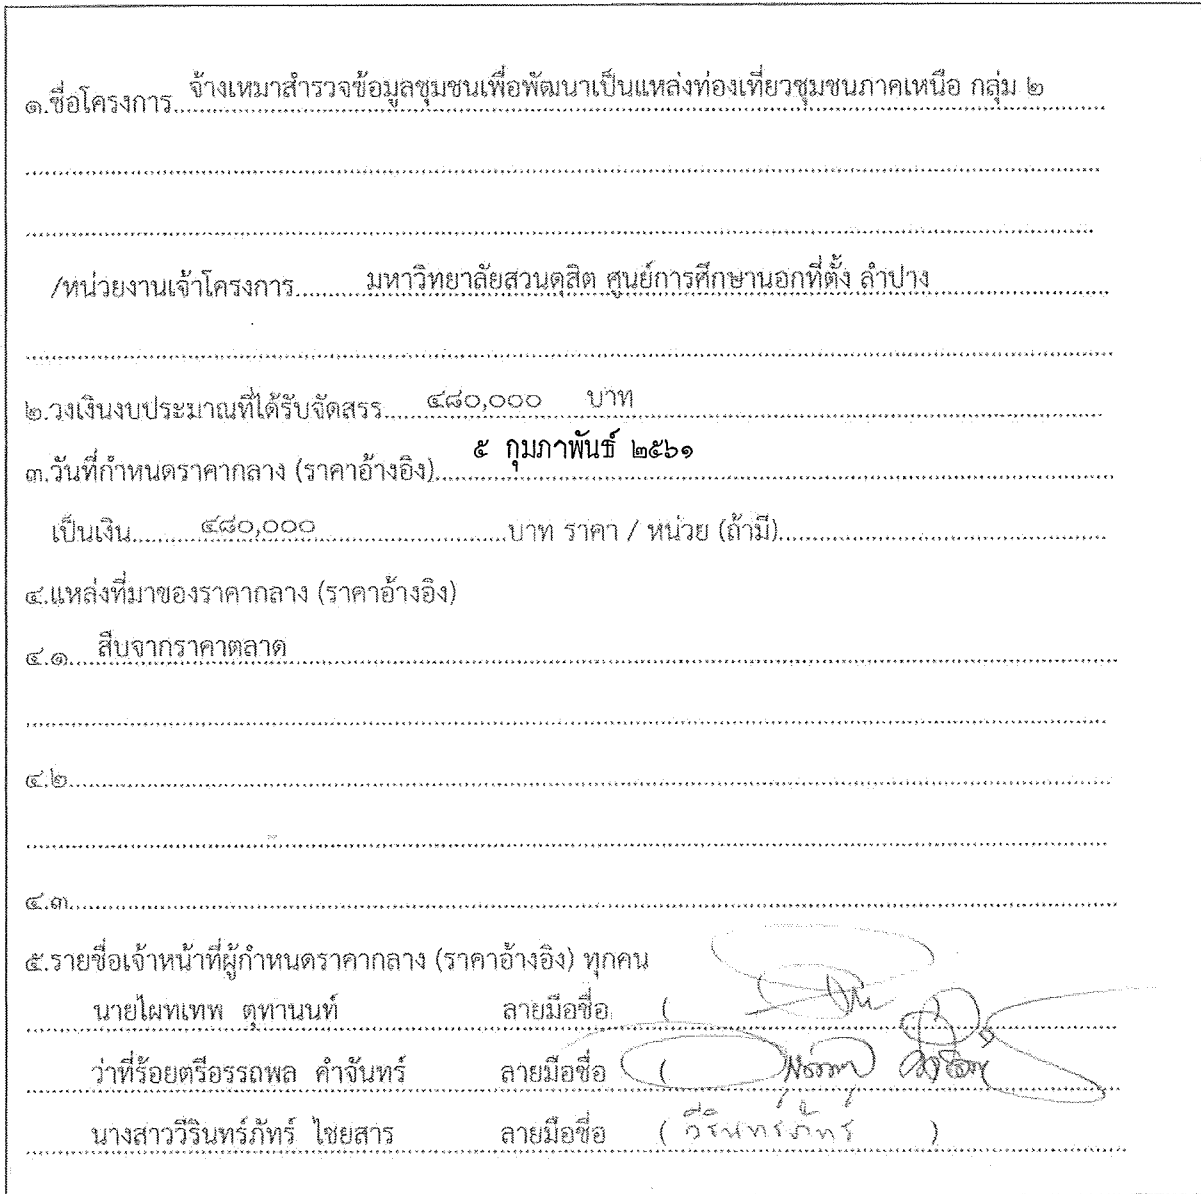 ๑.ชื่อโครงการ จ้างเหมาสำรวจข้อมูลชุมชนเพื่อพัฒนาเป็นแหล่งท่องเที่ยวชุมชนภาคเหนือ กลุ่ม ๒
/หน่วยงานเจ้าโครงการ มหาวิทยาลัยสวนดุสิต ศูนย์การศึกษานอกที่ตั้ง ลำปาง
๒.วงเงินงบประมาณที่ได้รับจัดสรร ๔๘๐,๐๐๐ บาท
๓.วันที่กำหนดราคากลาง (ราคาอ้างอิง) ๕ กุมภาพันธ์ ๒๕๖๑
เป็นเงิน ๔๘๐,๐๐๐ บาท ราคา / หน่วย (ถ้ามี)
๔.แหล่งที่มาของราคากลาง (ราคาอ้างอิง)
๔.๑ สืบจากราคาตลาด
๔.๒
๔.๓
๕.รายชื่อเจ้าหน้าที่ผู้กำหนดราคากลาง (ราคาอ้างอิง) ทุกคน
นายไผทเทพ ตุทานนท์ ลายมือชื่อ (
ว่าที่ร้อยตรีอรรถพล คำจันทร์ ลายมือชื่อ (
นางสาววีรินทร์ภัทร์ ไชยสาร ลายมือชื่อ ( วีรินทร์ภัทร์ )